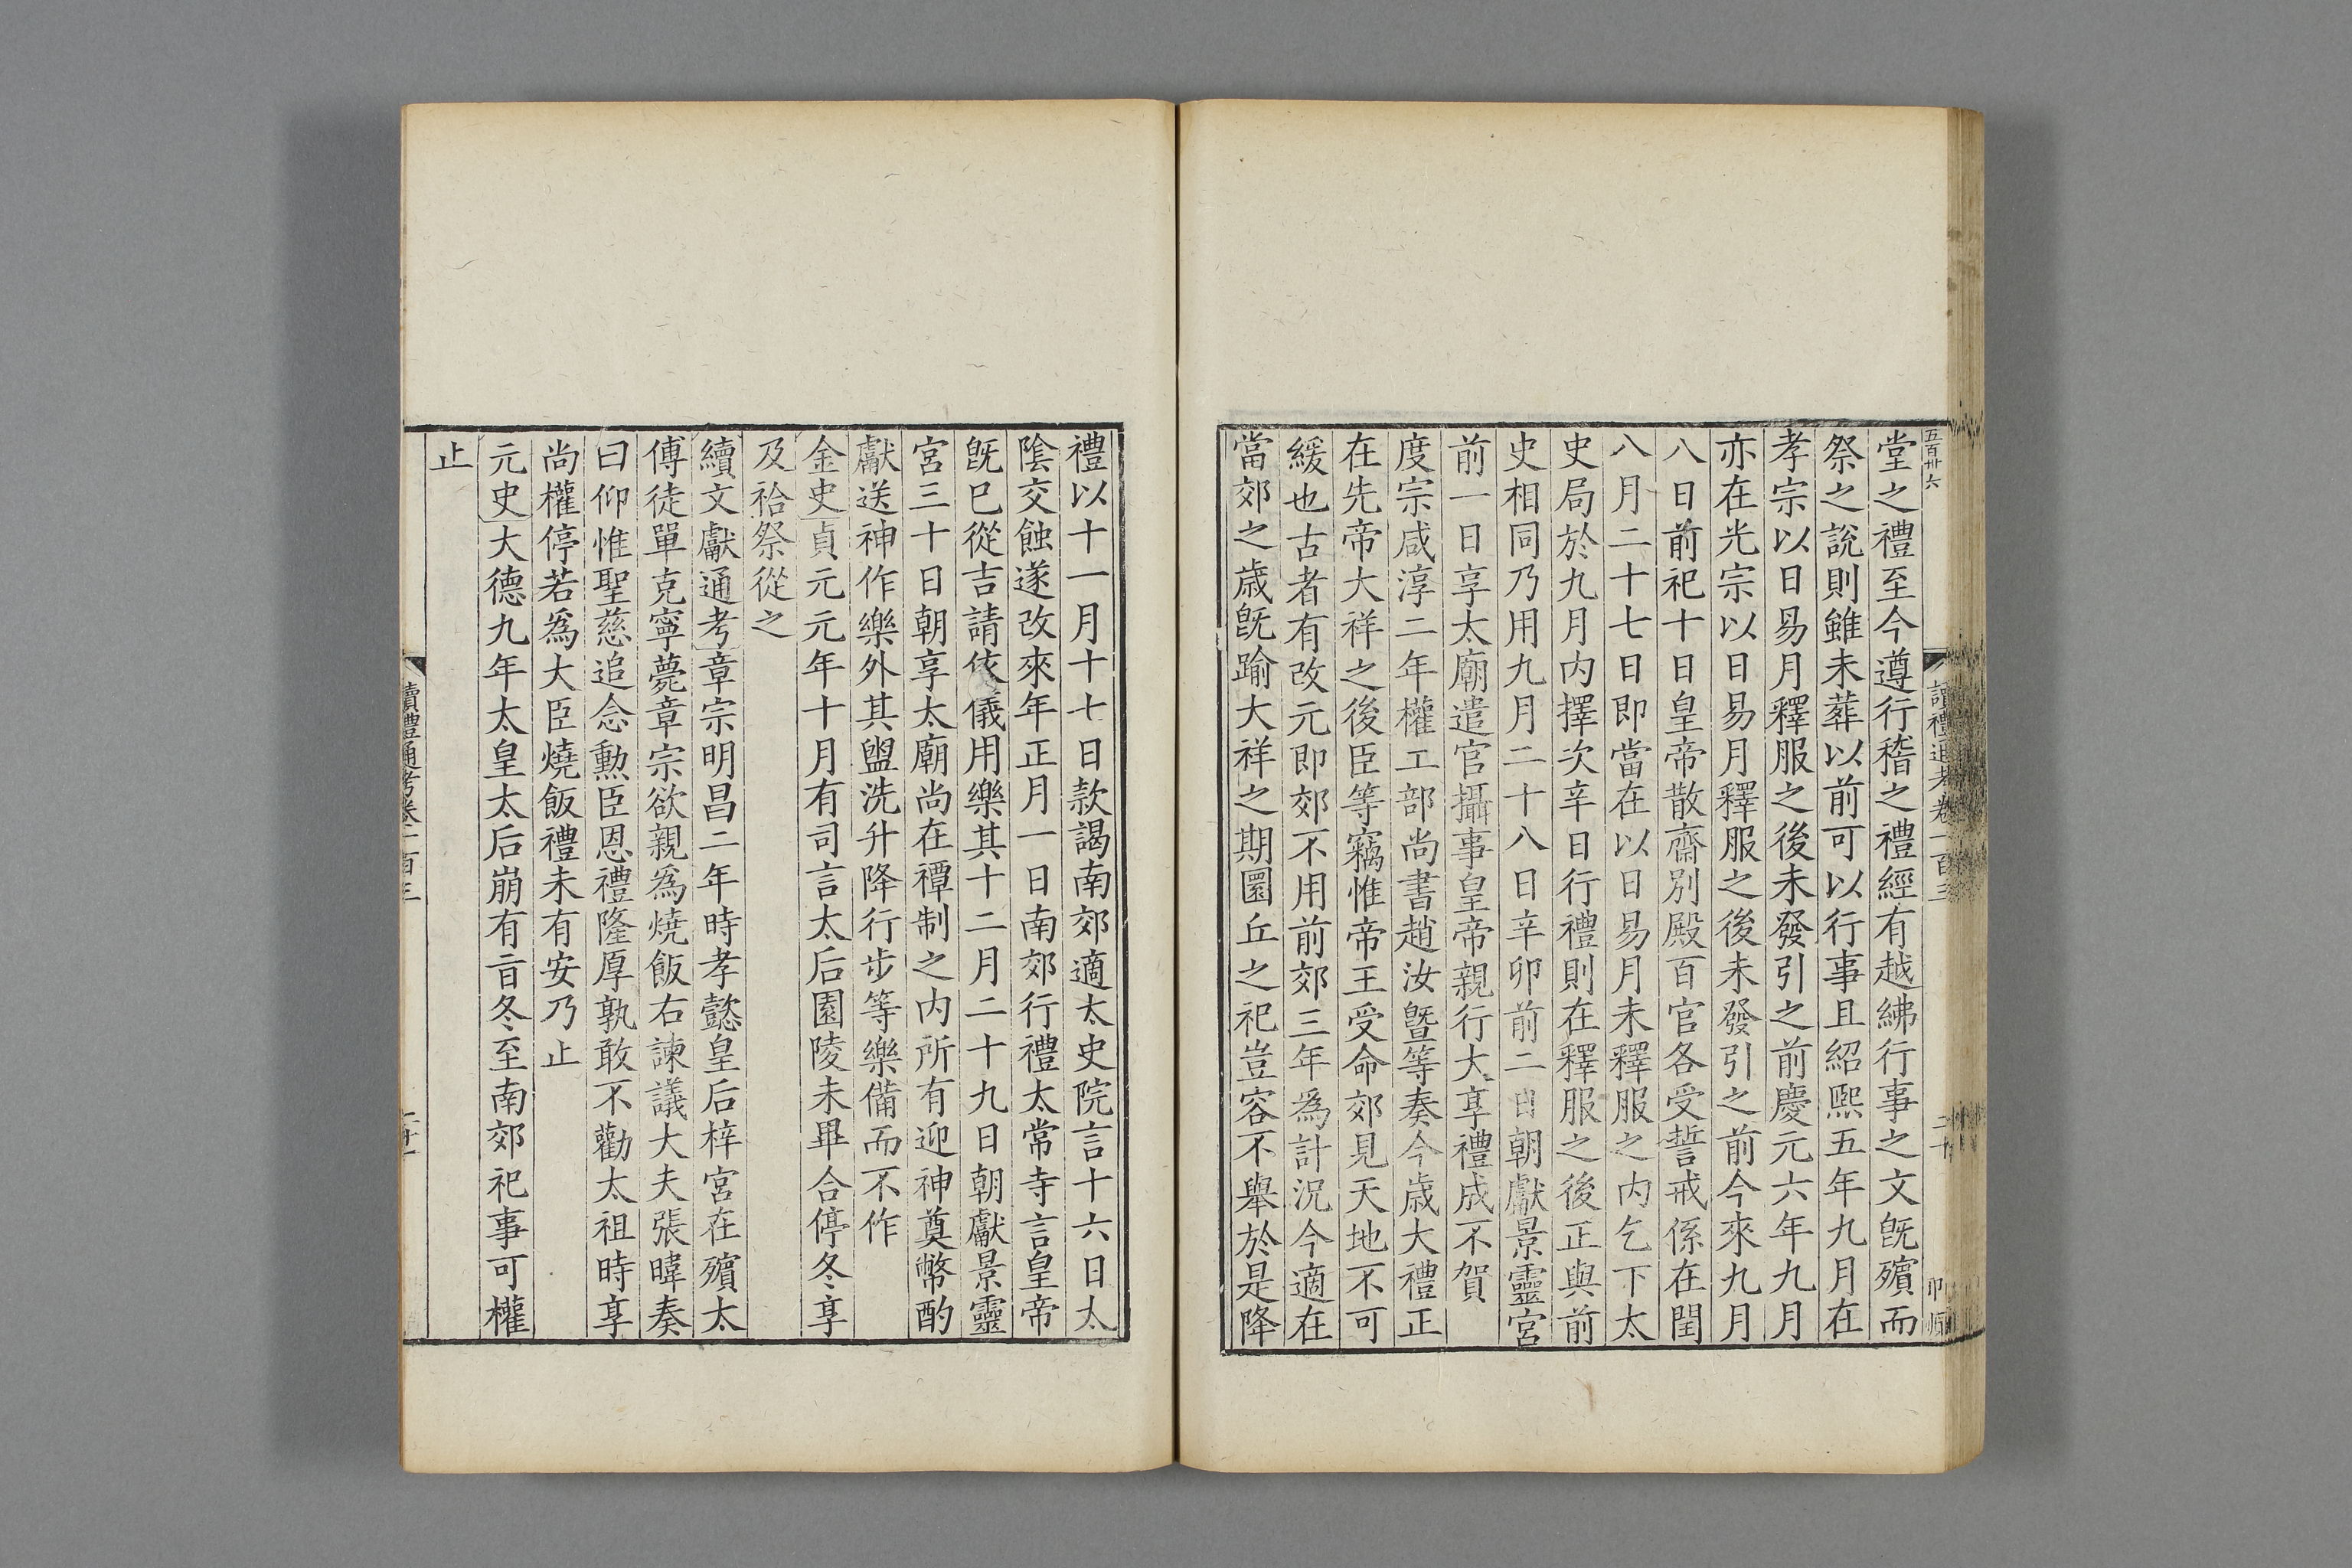 五百卅六
讀禮通考卷一百三
二十
堂之禮至今遵行稽之禮經有越紼行事之文旣殯而
祭之說則雖未葬以前可以行事且紹熙五年九月在
孝宗以日易月釋服之後未發引之前慶元六年九月
亦在光宗以日易月釋服之後未發引之前今來九月
八日前祀十日皇帝散齋別殿百官各受誓戒係在閏
八月二十七日即當在以日易月未釋服之內乞下太
史局於九月內擇次辛日行禮則在釋服之後正與前
史相同乃用九月二十八日辛卯前二日朝獻景靈宮
前一日享太廟遣官攝事皇帝親行大享禮成不賀
度宗咸淳二年權工部尚書趙汝暨等奏今歳大禮正
在先帝大祥之後臣等竊惟帝王受命郊見天地不可
緩也古者有改元即郊不用前郊三年為計況今適在
當郊之歳旣踰大祥之期圜丘之祀豈容不舉於是降
禮以十一月十七日款謁南郊適太史院言十六日太
陰交蝕遂改來年正月一日南郊行禮太常寺言皇帝
旣巳從吉請依儀用樂其十二月二十九日朝獻景靈
宮三十日朝享太廟尚在禫制之內所有迎神奠幣酌
獻送神作樂外其盥洗升降行步等樂備而不作
金史貞元元年十月有司言太后園陵未畢合停冬享
及祫祭從之
續文獻通考章宗明昌二年時孝懿皇后梓宮在殯太
傅徒單克寧薨章宗欲親為燒飯右諫議大夫張暐奏
曰仰惟聖慈追念勳臣恩禮隆厚孰敢不勸太祖時享
尚權停若為大臣燒飯禮未有安乃止
元史大德九年太皇太后崩有旨冬至南郊祀事可權
止
讀禮通考卷一百三